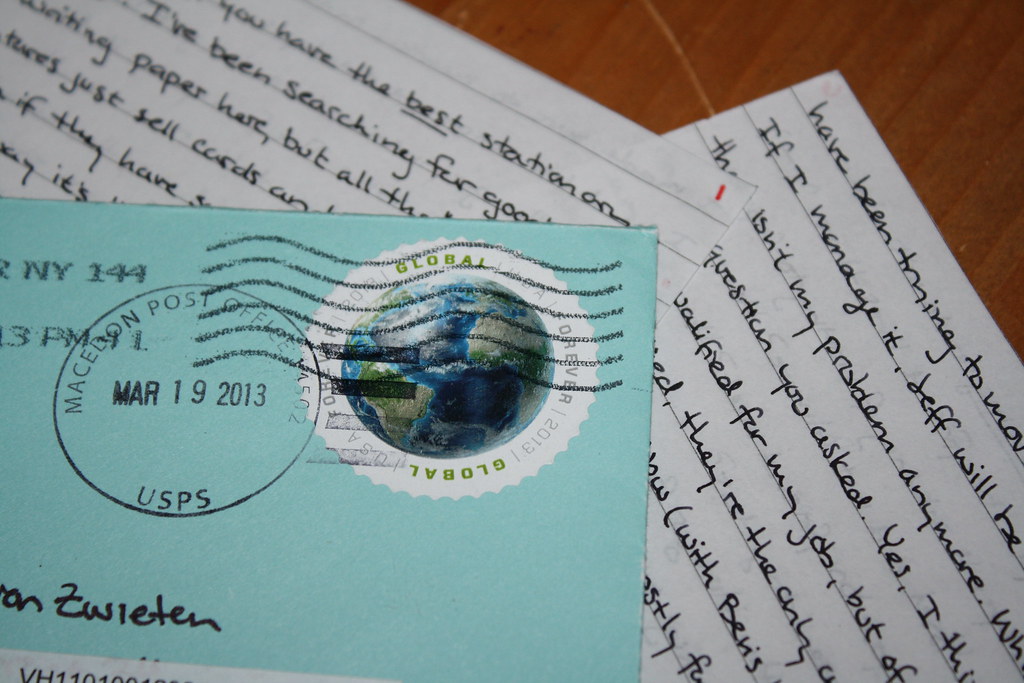 you have the best station
I've been searching for good
writing paper here, but all the
just sell cards an
if they have s
it's
have been trying to mov
If I manage it, Jeff will be
isn't my problem anymore. Wh
question you asked. Yes, I thi
qualified for my job, but of
they're the only
(with Ben's
NY 144
13 PM 1 L
MACEDON POST OFFICE
MAR 19 2013
USPS
GLOBAL
USA FOREVER 2013
GLOBAL
USA FOREVER 2013
Zwieten